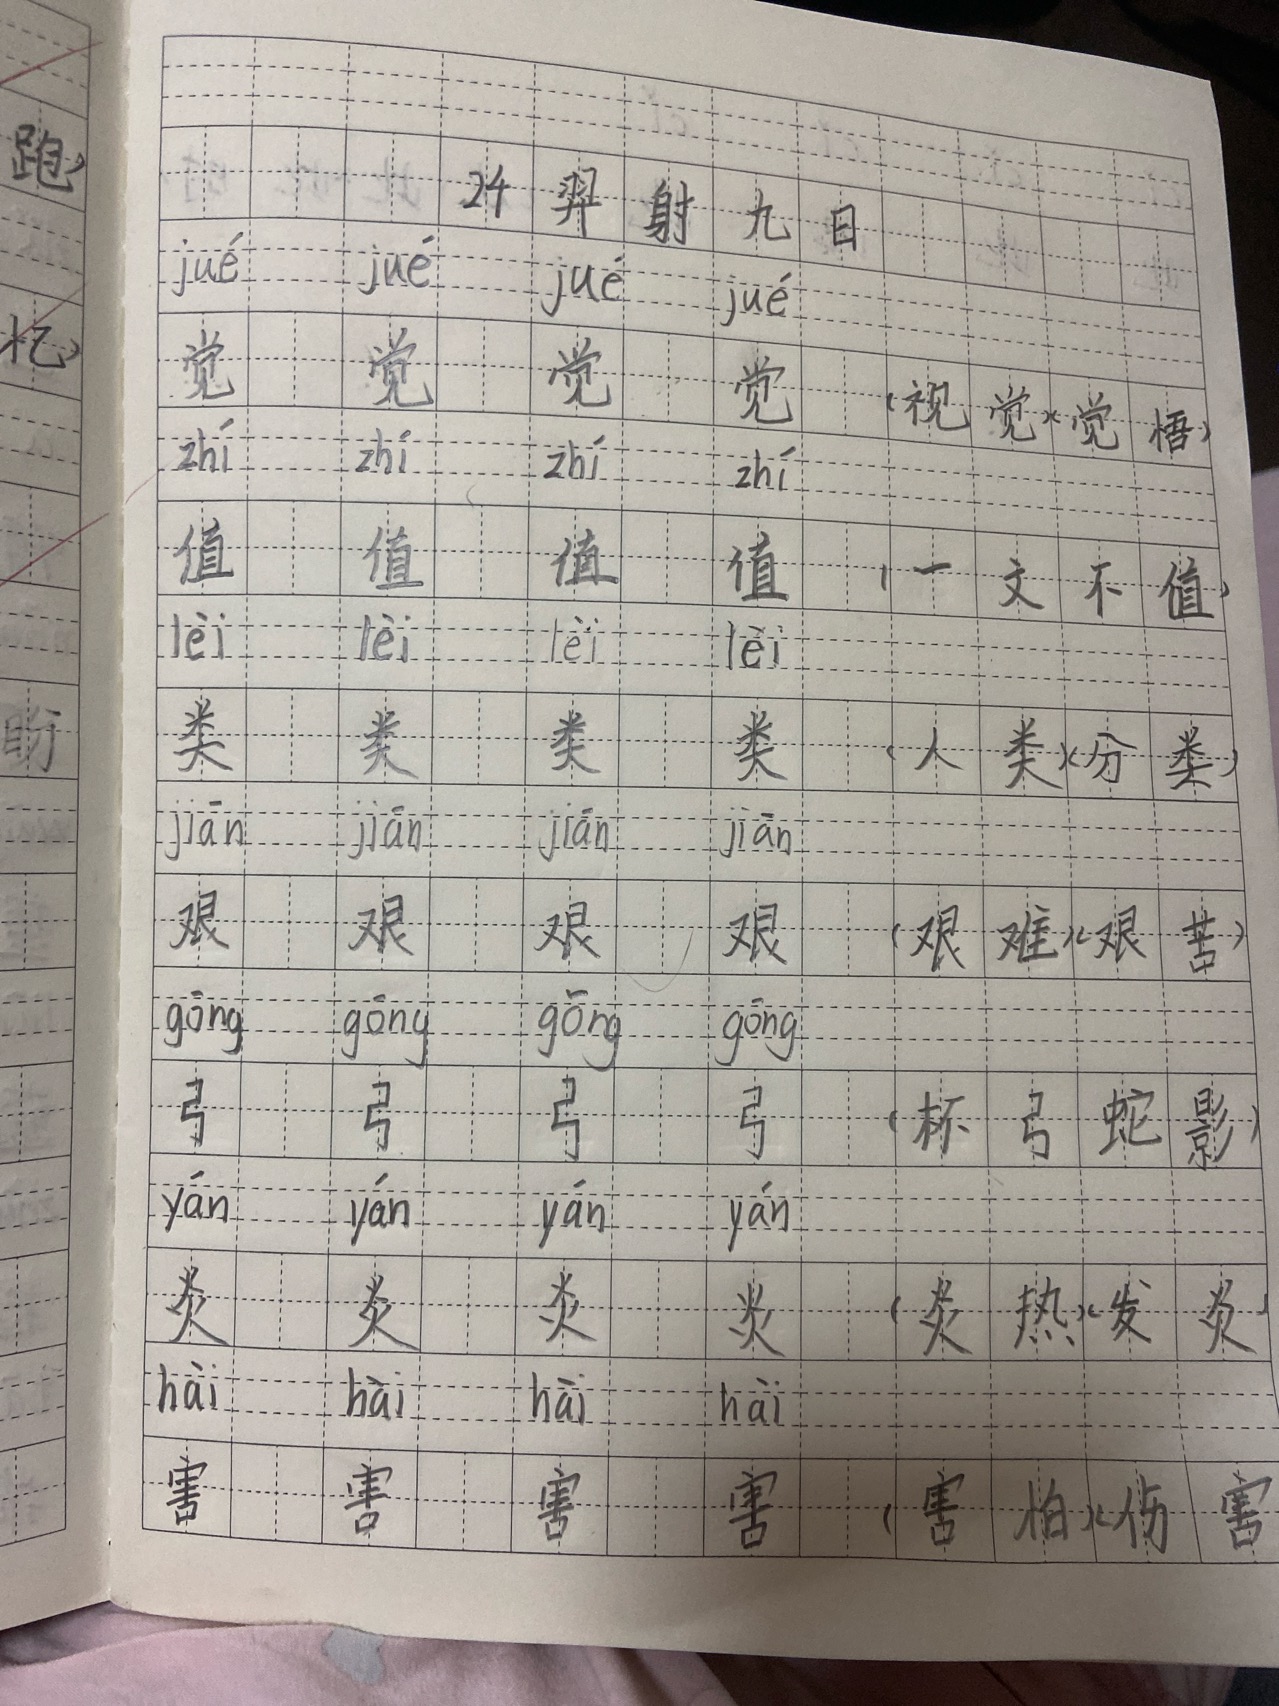 跑）
忆）
盼
24 羿射九日
jué jué jué jué
觉 觉 觉 觉 （视觉）（觉悟）
zhí zhí zhí zhí
值 值 值 值 （一文不值）
lèi lèi lèi lèi
类 类 类 类 （人类）（分类）
jiān jiān jiān jiān
艰 艰 艰 艰 （艰难）（艰苦）
gōng gōng gōng gōng
弓 弓 弓 弓 （杯弓蛇影）
yán yán yán yán
炎 炎 炎 炎 （炎热）（发炎）
hài hài hài hài
害 害 害 害 （害怕）（伤害